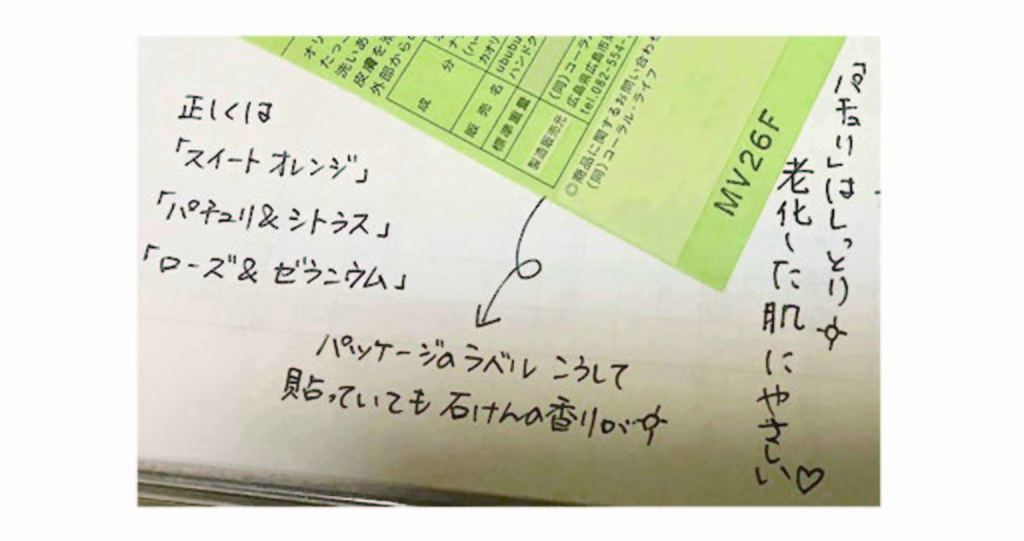 正しくは
「スイートオレンジ」
「パチュリ&シトラス」
「ローズ&ゼラニウム」
パッケージのラベル こうして
貼っていても 石けんの香りが
「パチュリ」はしっとり
老化した肌にやさしい♡
オリ
たっ
洗いあ
皮膚を清
外部から
成分
カオリ
販売名
ububu
ハンドク
標準重量
製造販売元
(同)コーラ
広島県広島市
tel.082-554-
◎商品に関するお問い合わせ
(同)コーラル・ライフ
MV26F